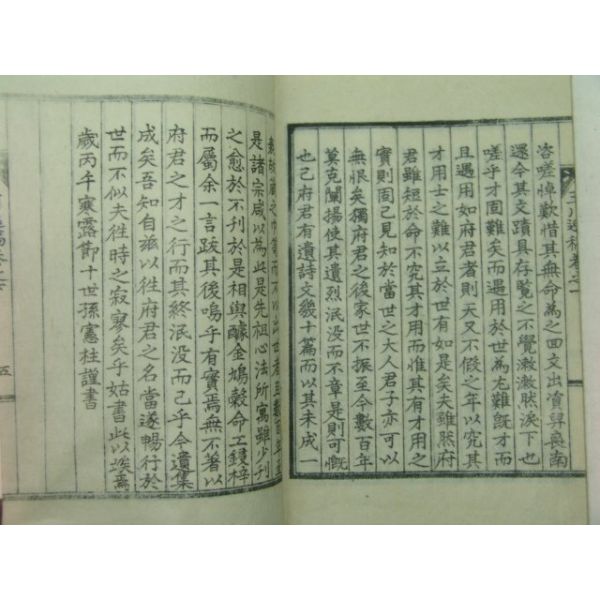 咨嗟悼歎惜其無命為之回文出賓昇奠南
還今其文蹟具存覽之不覺潸潸然淚下也
嗟乎才固難矣而遇用於世為尤難旣才而
且遇用如府君者則天又不假之年以究其
才用士之難以立於世有如是矣夫雖然府
君雖短於命不究其才用而惟其有才用之
實則固已見知於當世之大人君子亦可以
無恨矣獨府君之後家世不振至今數百年
莫克闡揚使其遺烈泯没而不章是則可慨
也已府君有遺詩文幾十篇而以其未成一
藏之巾笥而不以出世者
是諸宗咸以為此是先祖心法所寓雖少刊
之愈於不刊於是相與醵金鳩穀命工鋟梓
而屬余一言跋其後嗚乎有實焉無不著以
府君之才之行而其終泯没而已乎今遺集
成矣吾知自玆以徃府君之名當遂暢行於
世而不似夫徃時之寂寥矣乎姑書此以竢焉
歲丙午寒露節十世孫憲柱謹書
卷之一
五